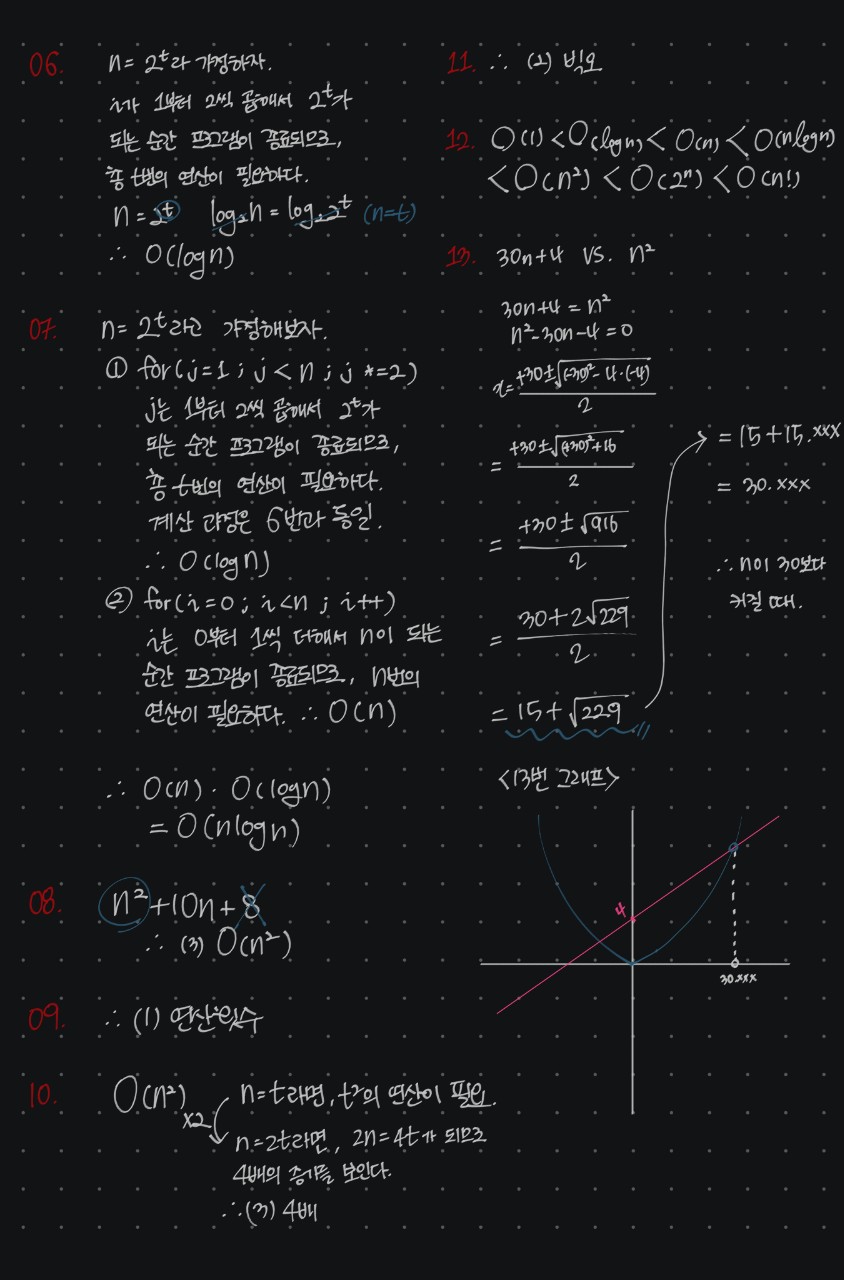 06. n = 2^t라 가정하자.
i가 1부터 2씩 곱해서 2^t가
되는 순간 프로그램이 종료되므로,
총 t번의 연산이 필요하다.
n = 2^t log₂n = log₂2^t (n=t)
∴ O(logn)
07. n = 2^t라고 가정해보자.
① for(j=1 ; j < n ; j *=2)
j는 1부터 2씩 곱해서 2^t가
되는 순간 프로그램이 종료되므로,
총 t번의 연산이 필요하다.
계산 과정은 6번과 동일.
∴ O(logn)
② for(i=0 ; i<n ; i++)
i는 0부터 1씩 더해서 n이 되는
순간 프로그램이 종료되므로, n번의
연산이 필요하다. ∴ O(n)
∴ O(n) · O(logn)
= O(nlogn)
08. n²+10n+8
∴ (3) O(n²)
09. ∴ (1) 연산횟수
10. O(n²) n=t라면, t²의 연산이 필요.
x2
n=2t라면, 2n=4t가 되므로
4배의 증가를 보인다.
∴(3) 4배
11. ∴ (2) 빅오
12. O(1) < O(logn) < O(n) < O(nlogn)
< O(n²) < O(2ⁿ) < O(n!)
13. 30n+4 VS. n²
30n+4 = n²
n²-30n-4=0
x= +30±√(-30)²-4·(-4) / 2
= +30±√(+30)²+16 / 2
= +30±√916 / 2
= 30+2√229 / 2
= 15+√229
= 15+15.xxx
= 30.xxx
∴ n이 30보다
커질 때.
<13번 그래프>
4
30.xxx